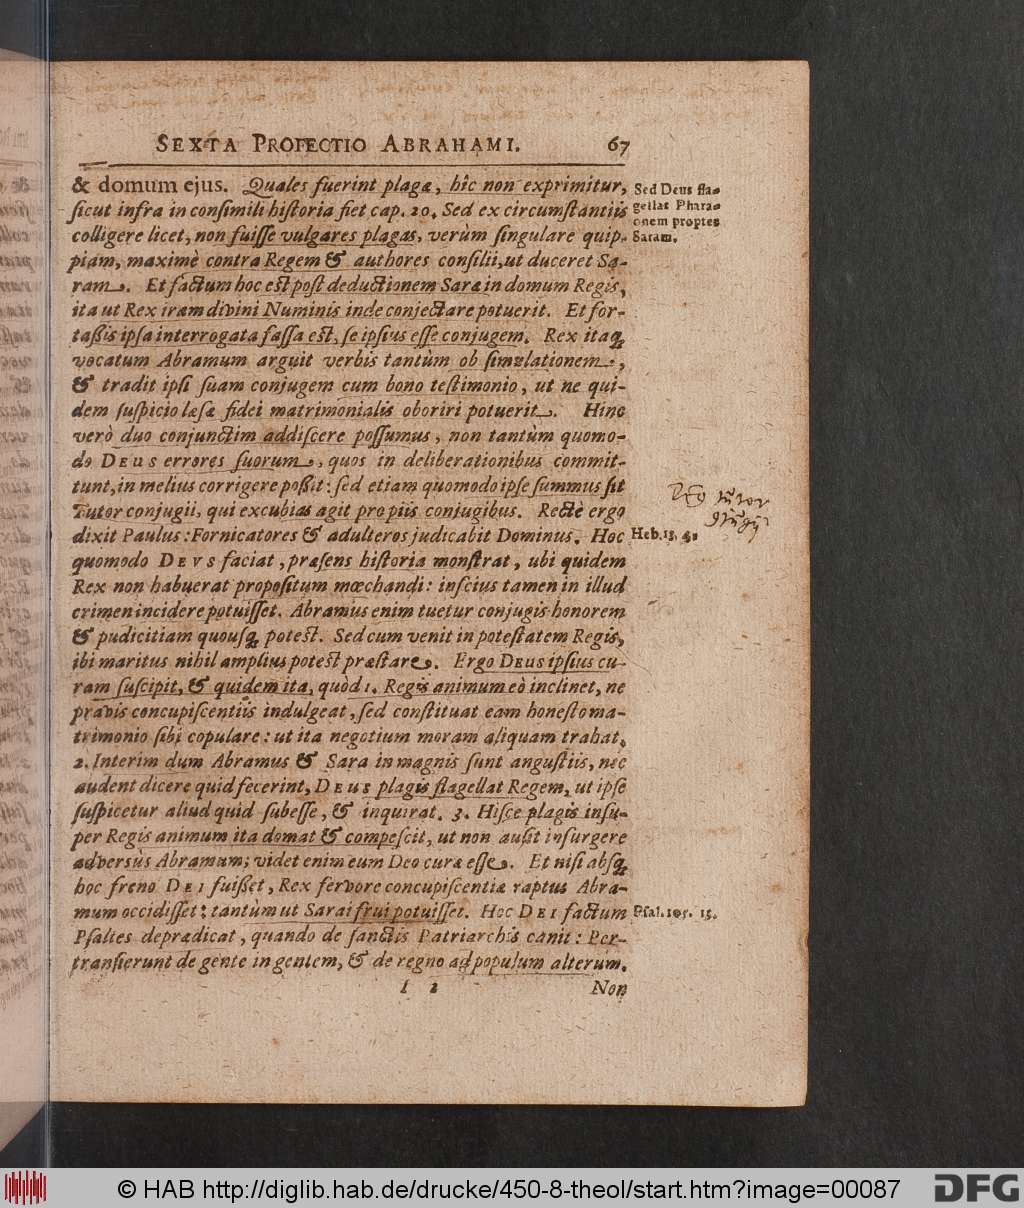 SEXTA PROFECTIO ABRAHAMI. 67
& domum ejus. Quales fuerint plagæ, hîc non exprimitur,
sicut infra in consimili historia fiet cap. 20. Sed ex circumstantiis
colligere licet, non fuisse vulgares plagas, verùm singulare quip-
piam, maximè contra Regem & authores consilii, ut duceret Sa-
ram. Et factum hoc est post deductionem Saræ in domum Regis,
ita ut Rex iram divini Numinis inde conjectare potuerit. Et for-
taßis ipsa interrogata fassa est, se ipsius esse conjugem. Rex itaq;
vocatum Abramum arguit verbis tantùm ob simulationem,
& tradit ipsi suam conjugem cum bono testimonio, ut ne qui-
dem suspicio læsæ fidei matrimonialis oboriri potuerit. Hinc
verò duo conjunctim addiscere possumus, non tantùm quomo-
do DEUS errores suorum, quos in deliberationibus commit-
tunt, in melius corrigere poßit: sed etiam quomodo ipse summus sit
Tutor conjugii, qui excubias agit pro piis conjugibus. Rectè ergo
dixit Paulus: Fornicatores & adulteros judicabit Dominus. Hoc
quomodo DEVS faciat, præsens historia monstrat, ubi quidem
Rex non habuerat propositum mœchandi: inscius tamen in illud
crimen incidere potuisset. Abramus enim tuetur conjugis honorem
& pudicitiam quousq; potest. Sed cum venit in potestatem Regis,
ibi maritus nihil amplius potest præstare. Ergo DEUS ipsius cu-
ram suscipit, & quidem ita, quòd 1. Regis animum eò inclinet, ne
pravis concupiscentiis indulgeat, sed constituat eam honesto ma-
trimonio sibi copulare: ut ita negotium moram aliquam trahat.
2. Interim dum Abramus & Sara in magnis sunt angustiis, nec
audent dicere quid fecerint, DEUS plagis flagellat Regem, ut ipse
suspicetur aliud quid subesse, & inquirat. 3. Hisce plagis insu-
per Regis animum ita domat & compescit, ut non ausit insurgere
adversùs Abramum; videt enim eum Deo curæ esse. Et nisi absq;
hoc freno DEI fuißet, Rex fervore concupiscentiæ raptus Abra-
mum occidisset: tantùm ut Sarai frui potuisset. Hoc DEI factum
Psaltes deprædicat, quando de sanctis Patriarchis canit: Per-
transierunt de gente in gentem, & de regno ad populum alterum.
I 2 Non
Sed Deus fla-
gellat Phara-
onem propter
Saram.
Heb. 13. 4.
Psal. 105. 13.
© HAB http://diglib.hab.de/drucke/450-8-theol/start.htm?image=00087
DFG